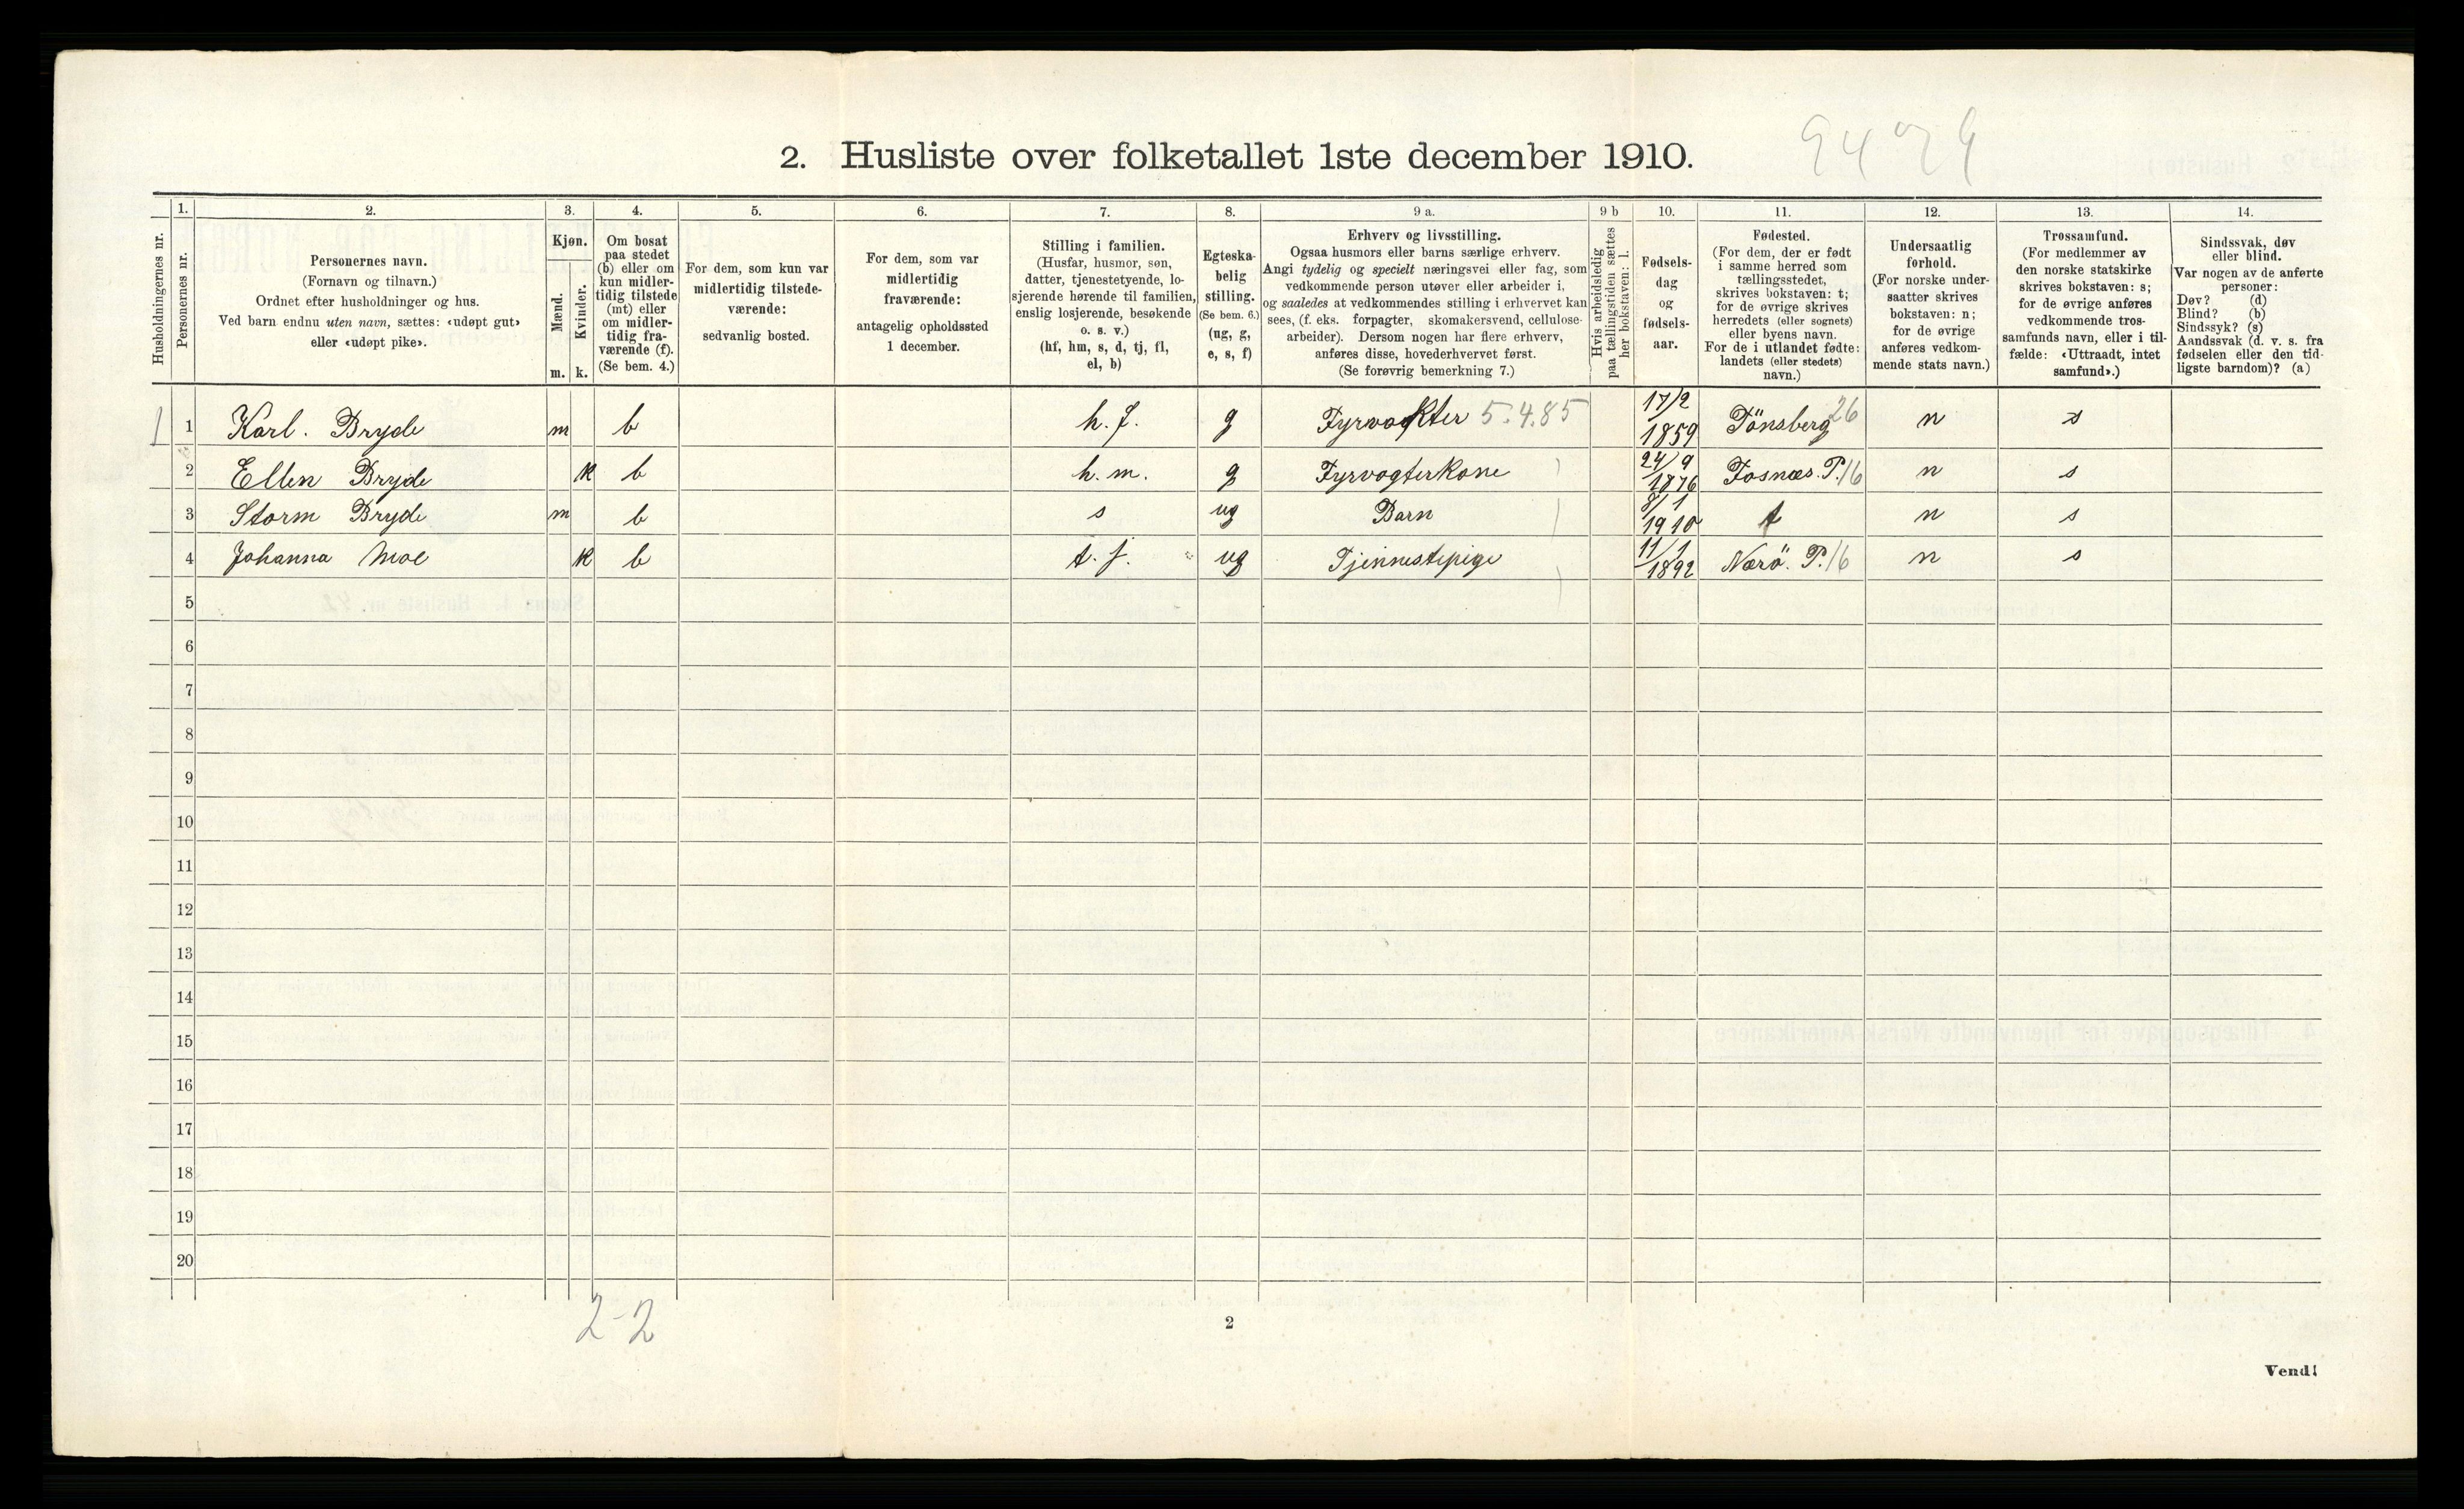 2. Husliste over folketallet 1ste december 1910.
Husholdningernes nr.
1.
Personernes nr.
2.
Personernes navn.
(Fornavn og tilnavn.)
Ordnet efter husholdninger og hus.
Ved barn endnu uten navn, sættes: «udøpt gut»
eller «udøpt pike».
3.
Kjøn.
Mænd.
Kvinder.
m. k.
4.
Om bosat
paa stedet
(b) eller om
kun midler-
tidig tilstede
(mt) eller
om midler-
tidig fra-
værende (f).
(Se bem. 4.)
5.
For dem, som kun var
midlertidig tilstede-
værende:
sedvanlig bosted.
6.
For dem, som var
midlertidig
fraværende:
antagelig opholdssted
1 december.
7.
Stilling i familien.
(Husfar, husmor, søn,
datter, tjenestetyende, lo-
sjerende hørende til familien,
enslig losjerende, besøkende
o. s. v.)
(hf, hm, s, d, tj, fl,
el, b)
8.
Egteska-
belig
stilling.
(Se bem. 6.)
(ug, g,
e, s, f)
9 a.
Erhverv og livsstilling.
Ogsaa husmors eller barns særlige erhverv.
Angi tydelig og specielt næringsvei eller fag, som
vedkommende person utøver eller arbeider i,
og saaledes at vedkommendes stilling i erhvervet kan
sees, (f. eks. forpagter, skomakersvend, cellulose-
arbeider). Dersom nogen har flere erhverv,
anføres disse, hovederhvervet først.
(Se forøvrig bemerkning 7.)
9 b
Hvis arbeidsledig
paa tællingstiden sættes
her bokstaven: l.
10.
Fødsels-
dag
og
fødsels-
aar.
11.
Fødested.
(For dem, der er født
i samme herred som
tællingsstedet,
skrives bokstaven: t;
for de øvrige skrives
herredets (eller sognets)
eller byens navn.
For de i utlandet fødte:
landets (eller stedets)
navn.)
12.
Undersaatlig
forhold.
(For norske under-
saatter skrives
bokstaven: n;
for de øvrige
anføres vedkom-
mende stats navn.)
13.
Trossamfund.
(For medlemmer av
den norske statskirke
skrives bokstaven: s;
for de øvrige anføres
vedkommende tros-
samfunds navn, eller i til-
fælde: «Uttraadt, intet
samfund».)
14.
Sindssvak, døv
eller blind.
Var nogen av de anførte
personer:
Døv? (d)
Blind? (b)
Sindssyk? (s)
Aandssvak (d. v. s. fra
fødselen eller den tid-
ligste barndom)? (a)
1 1 Karl. Bryde m b h. f. g Fyrvokter 5.4.85 17/2 1859 Tönsberg 26 n s
2 Ellen Bryde k b h. m. g Fyrvogterkone 24/9 1876 Fosnæs. P. 16 n s
3 Storm Bryde m b s ug Barn 8/1 1910 t n s
4 Johanna Moe k b t. j. ug Tjennestepige 11/1 1892 Nærö. P. 16 n s
5
6
7
8
9
10
11
12
13
14
15
16
17
18
19
20
2-2
2
Vend!